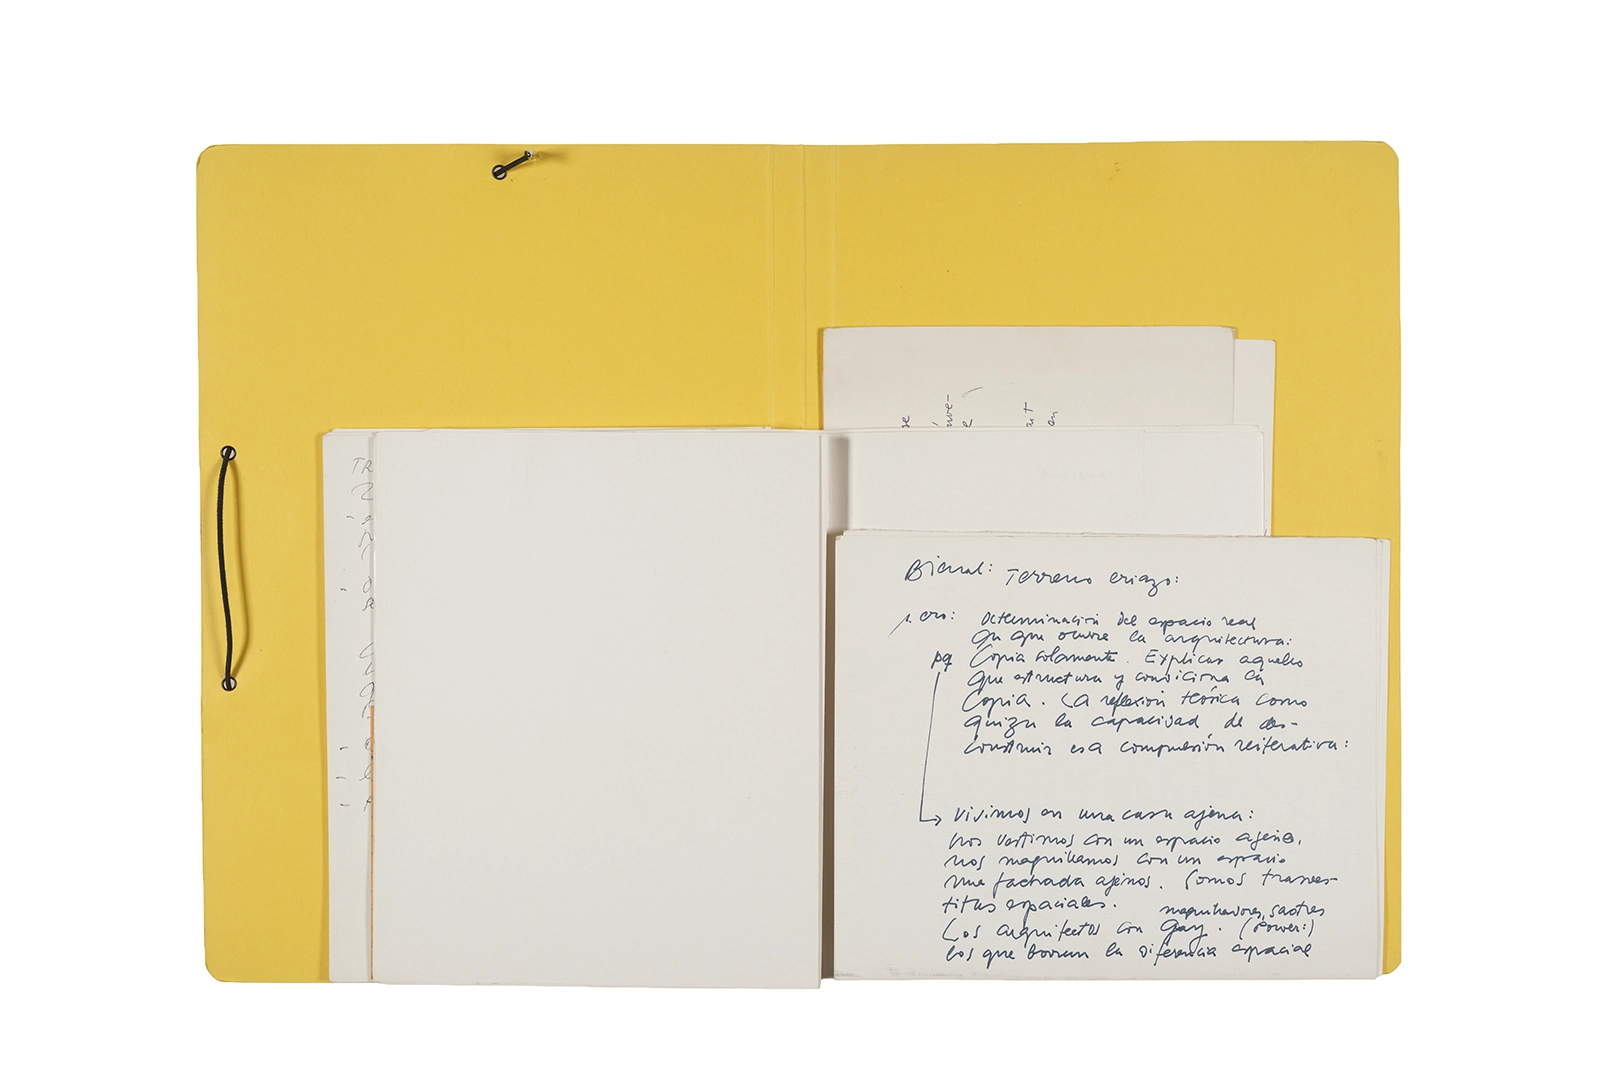 TR
Bienal: Terreno eriazo:
1. ero: Determinación del espacio real
en que ocurre la arquitectura:
pq Copia solamente. Explicar aquello
que estructura y condiciona la
Copia. La reflexión teórica como
quizu la capacidad de des-
construir esa compulsión reiterativa:
Vivimos en una casa ajena:
nos vestimos con un espacio ajeno,
nos maquillamos con un espacio
una fachada ajenos. Somos traves-
titas espaciales.
maquilladores, sastres
Los arquitectos con Gay. (Power:)
los que borran la diferencia espacial